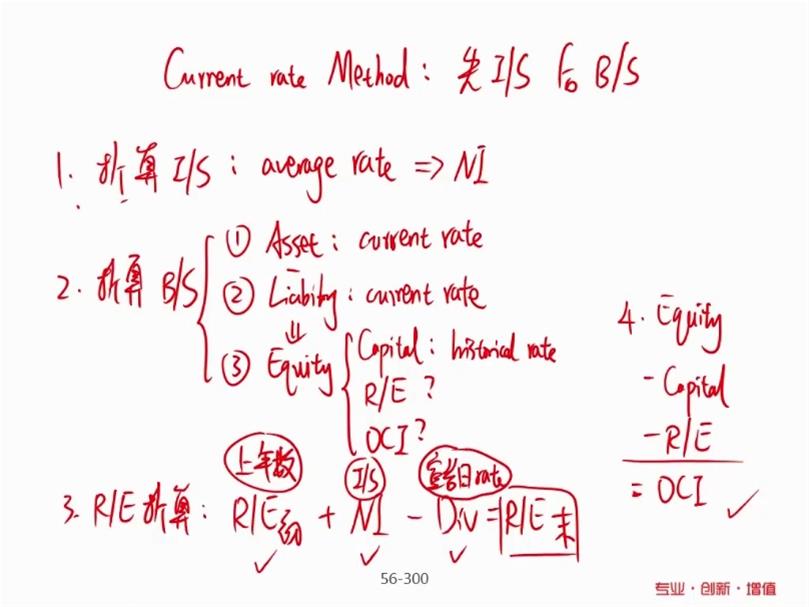 Current rate Method: 先 I/S 后 B/S
1. 折算 I/S: average rate => NI
2. 折算 B/S
① Asset: current rate
② Liability: current rate
⇓
③ Equity
Capital: historical rate
R/E ?
OCI ?
4. Equity
- Capital
- R/E
= OCI ✓
上年数 I/S 宣告日rate
3. R/E 折算: R/E初 + NI - Div = R/E末
✓ ✓ ✓
56-300
专业·创新·增值